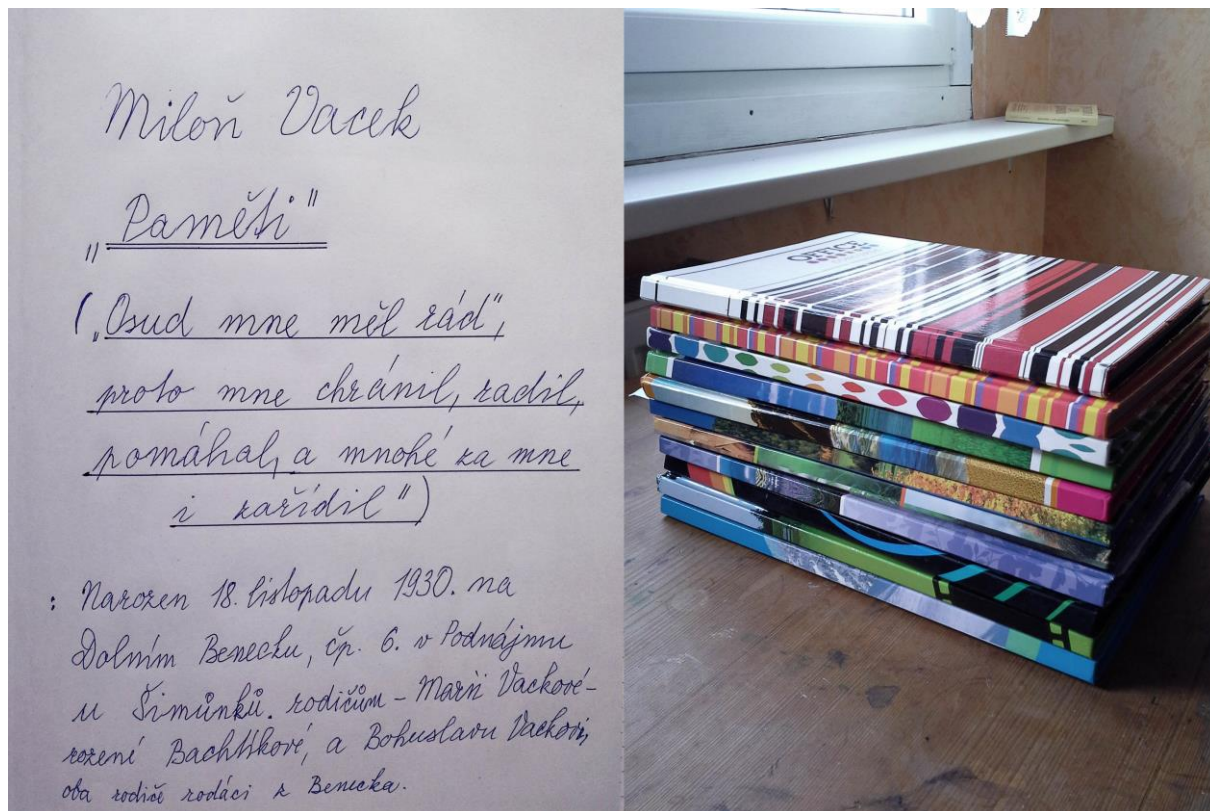 Miloň Vacek
„Paměti"
(„Osud mne měl rád",
proto mne chránil, radil,
pomáhal, a mnohé za mne
i zařídil")
: Narozen 18. listopadu 1930. na
Dolním Benecku, čp. 6. v Podnájmu
u Šimůnků. rodičům - Marii Vackové -
rozené Bachtíkové, a Bohuslavu Vackovi,
oba rodiče rodáci z Benecka.
OFFICE